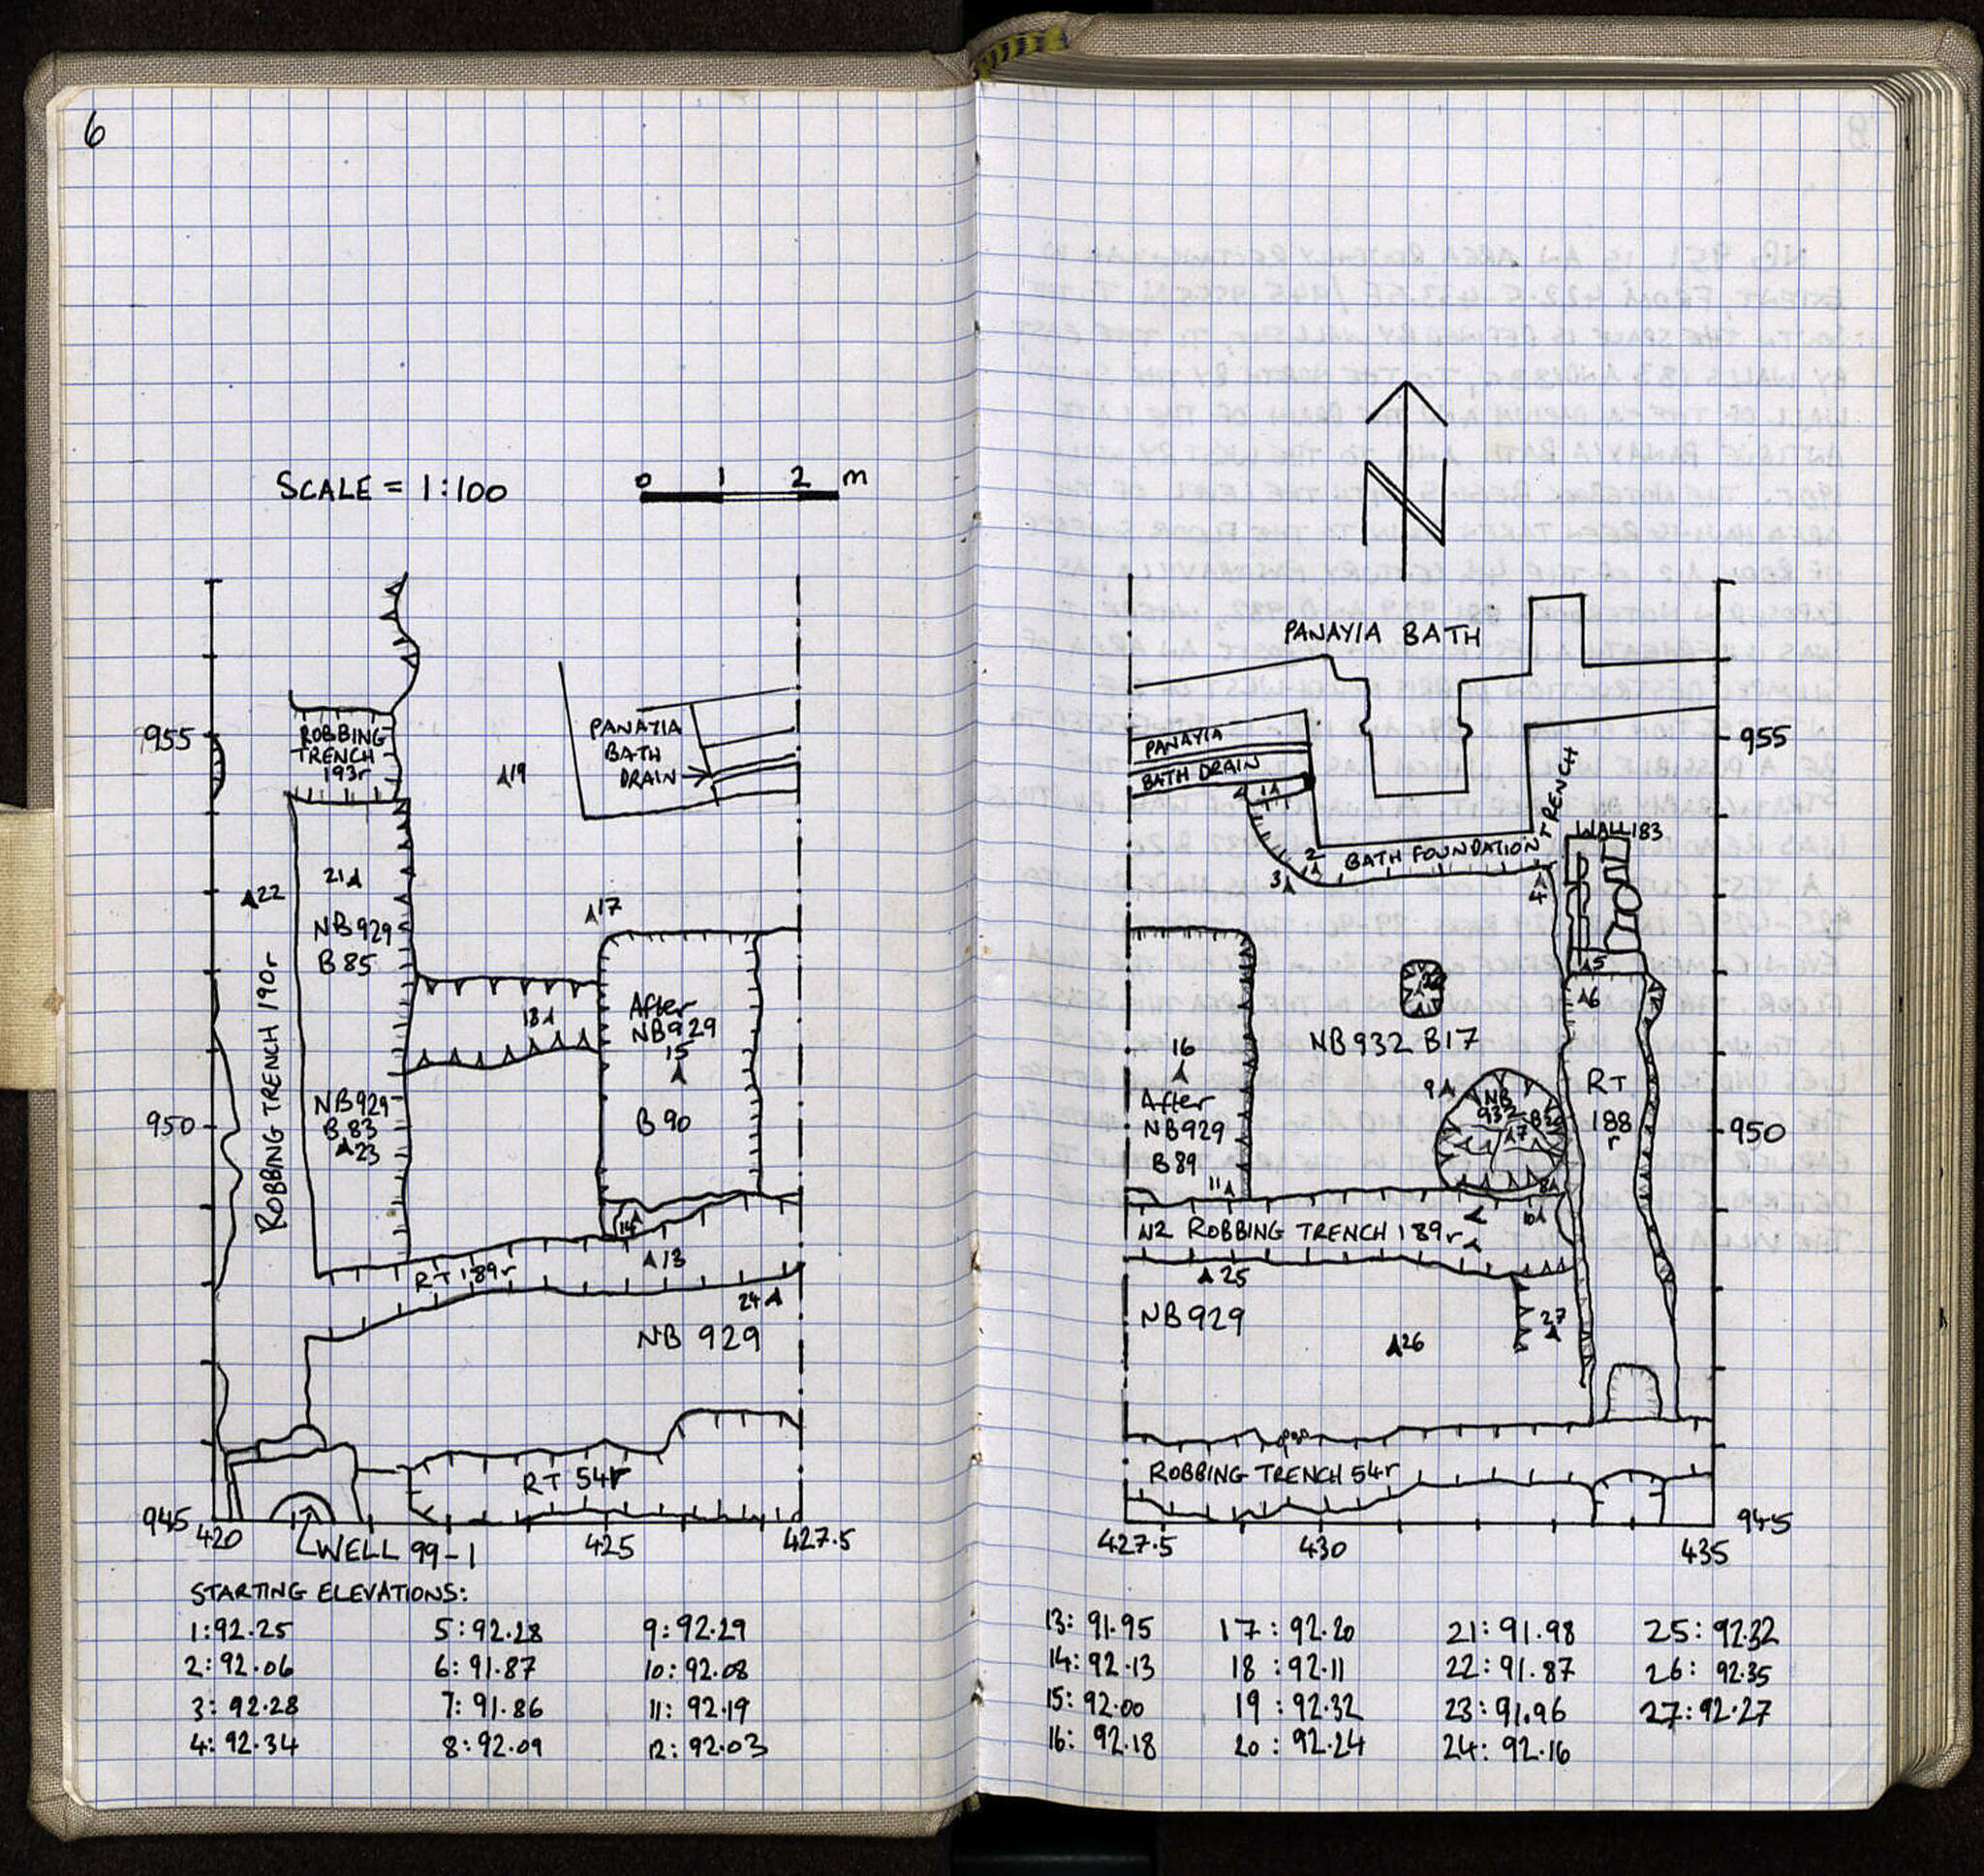 6
SCALE = 1:100
0 1 2 m
955
ROBBING
TRENCH
193r
PANAYIA
BATH
DRAIN
19
21
22
17
NB 929
B 85
ROBBING TRENCH 190r
18
After
NB 929
15
B 90
950
NB 929
B 83
23
14
13
RT 189r
24
NB 929
RT 54r
945
420
WELL 99-1
425
427.5
STARTING ELEVATIONS:
1: 92.25
2: 92.06
3: 92.28
4: 92.34
5: 92.28
6: 91.87
7: 91.86
8: 92.09
9: 92.29
10: 92.08
11: 92.19
12: 92.03
N
PANAYIA BATH
955
PANAYIA
BATH DRAIN
1
TRENCH
WALL 183
2
BATH FOUNDATION
3
4
5
6
NB 932 B17
16
After
NB 929
B 89
11
9
NB
932
7
8
RT
188
r
950
N2 ROBBING TRENCH 189r
10
25
NB 929
26
27
ROBBING TRENCH 54r
945
427.5
430
435
13: 91.95
14: 92.13
15: 92.00
16: 92.18
17: 92.20
18: 92.11
19: 92.32
20: 92.24
21: 91.98
22: 91.87
23: 91.96
24: 92.16
25: 92.32
26: 92.35
27: 92.27